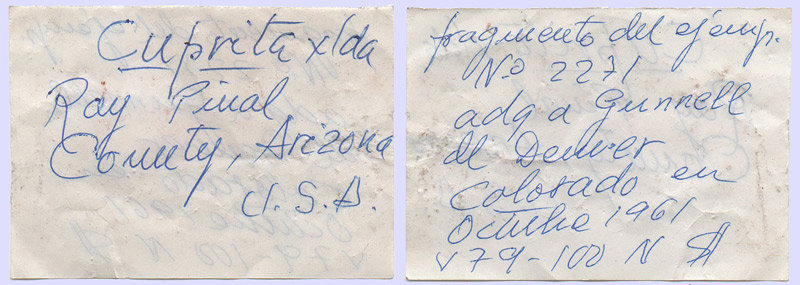 Cuprita xlda
Ray Pinal
County, Arizona
U.S.A.
fragmento del ejemp.
No 2271
adq a Gunnell
de Denver
Colorado en
Octubre 1961
v 79-100 N